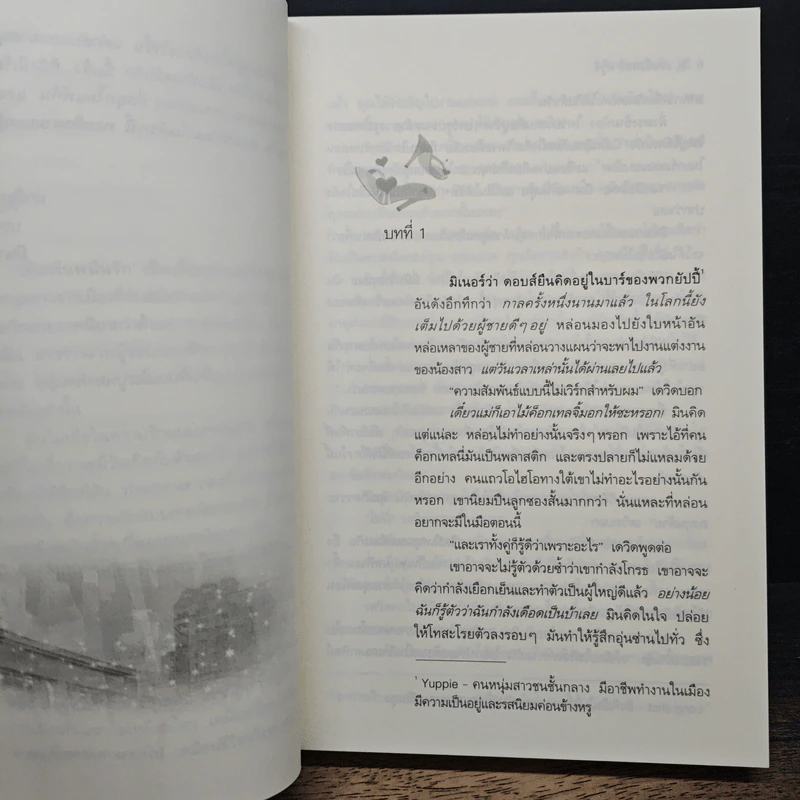 บทที่ 1
มิเนอร์ว่า ดอบส์ยืนคิดอยู่ในบาร์ของพวกยัปปี้¹
อันดังอึกทึกว่า กาลครั้งหนึ่งนานมาแล้ว ในโลกนี้ยัง
เต็มไปด้วยผู้ชายดีๆ อยู่ หล่อนมองไปยังใบหน้าอัน
หล่อเหลาของผู้ชายที่หล่อนวางแผนว่าจะพาไปงานแต่งงาน
ของน้องสาว แต่วันเวลาเหล่านั้นได้ผ่านเลยไปแล้ว
“ความสัมพันธ์แบบนี้ไม่เวิร์กสำหรับผม” เดวิดบอก
เดี๋ยวแม่ก็เอาไม้ค็อกเทลจิ้มอกให้ซะหรอก! มินคิด
แต่แน่ละ หล่อนไม่ทำอย่างนั้นจริงๆ หรอก เพราะไอ้ที่คน
ค็อกเทลนี่มันเป็นพลาสติก และตรงปลายก็ไม่แหลมด้วย
อีกอย่าง คนแถวโอไฮโอทางใต้เขาไม่ทำอะไรอย่างนั้นกัน
หรอก เขานิยมปืนลูกซองสั้นมากกว่า นั่นแหละที่หล่อน
อยากจะมีในมือตอนนี้
“และเราทั้งคู่ก็รู้ดีว่าเพราะอะไร” เดวิดพูดต่อ
เขาอาจจะไม่รู้ตัวด้วยซ้ำว่าเขากำลังโกรธ เขาอาจจะ
คิดว่ากำลังเยือกเย็นและทำตัวเป็นผู้ใหญ่ดีแล้ว อย่างน้อย
ฉันก็รู้ตัวว่าฉันกำลังเดือดเป็นบ้าเลย มินคิดในใจ ปล่อย
ให้โทสะโรยตัวลงรอบๆ มันทำให้รู้สึกอุ่นซ่านไปทั่ว ซึ่ง
¹ Yuppie – คนหนุ่มสาวชนชั้นกลาง มีอาชีพทำงานในเมือง
มีความเป็นอยู่และรสนิยมค่อนข้างหรู